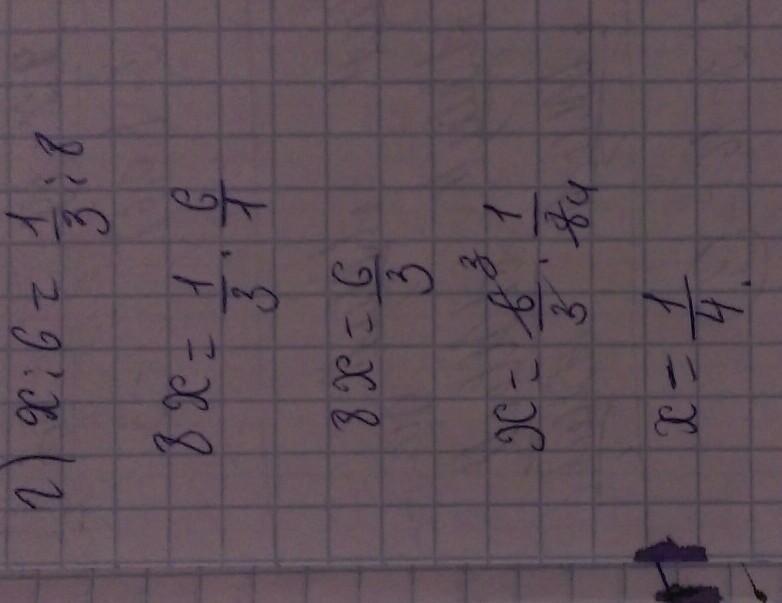 г) x : 6 = 1/3 : 8
8x = 1/3 · 6/1
8x = 6/3
x = 6 3/3 · 1/8 4
x = 1/4.